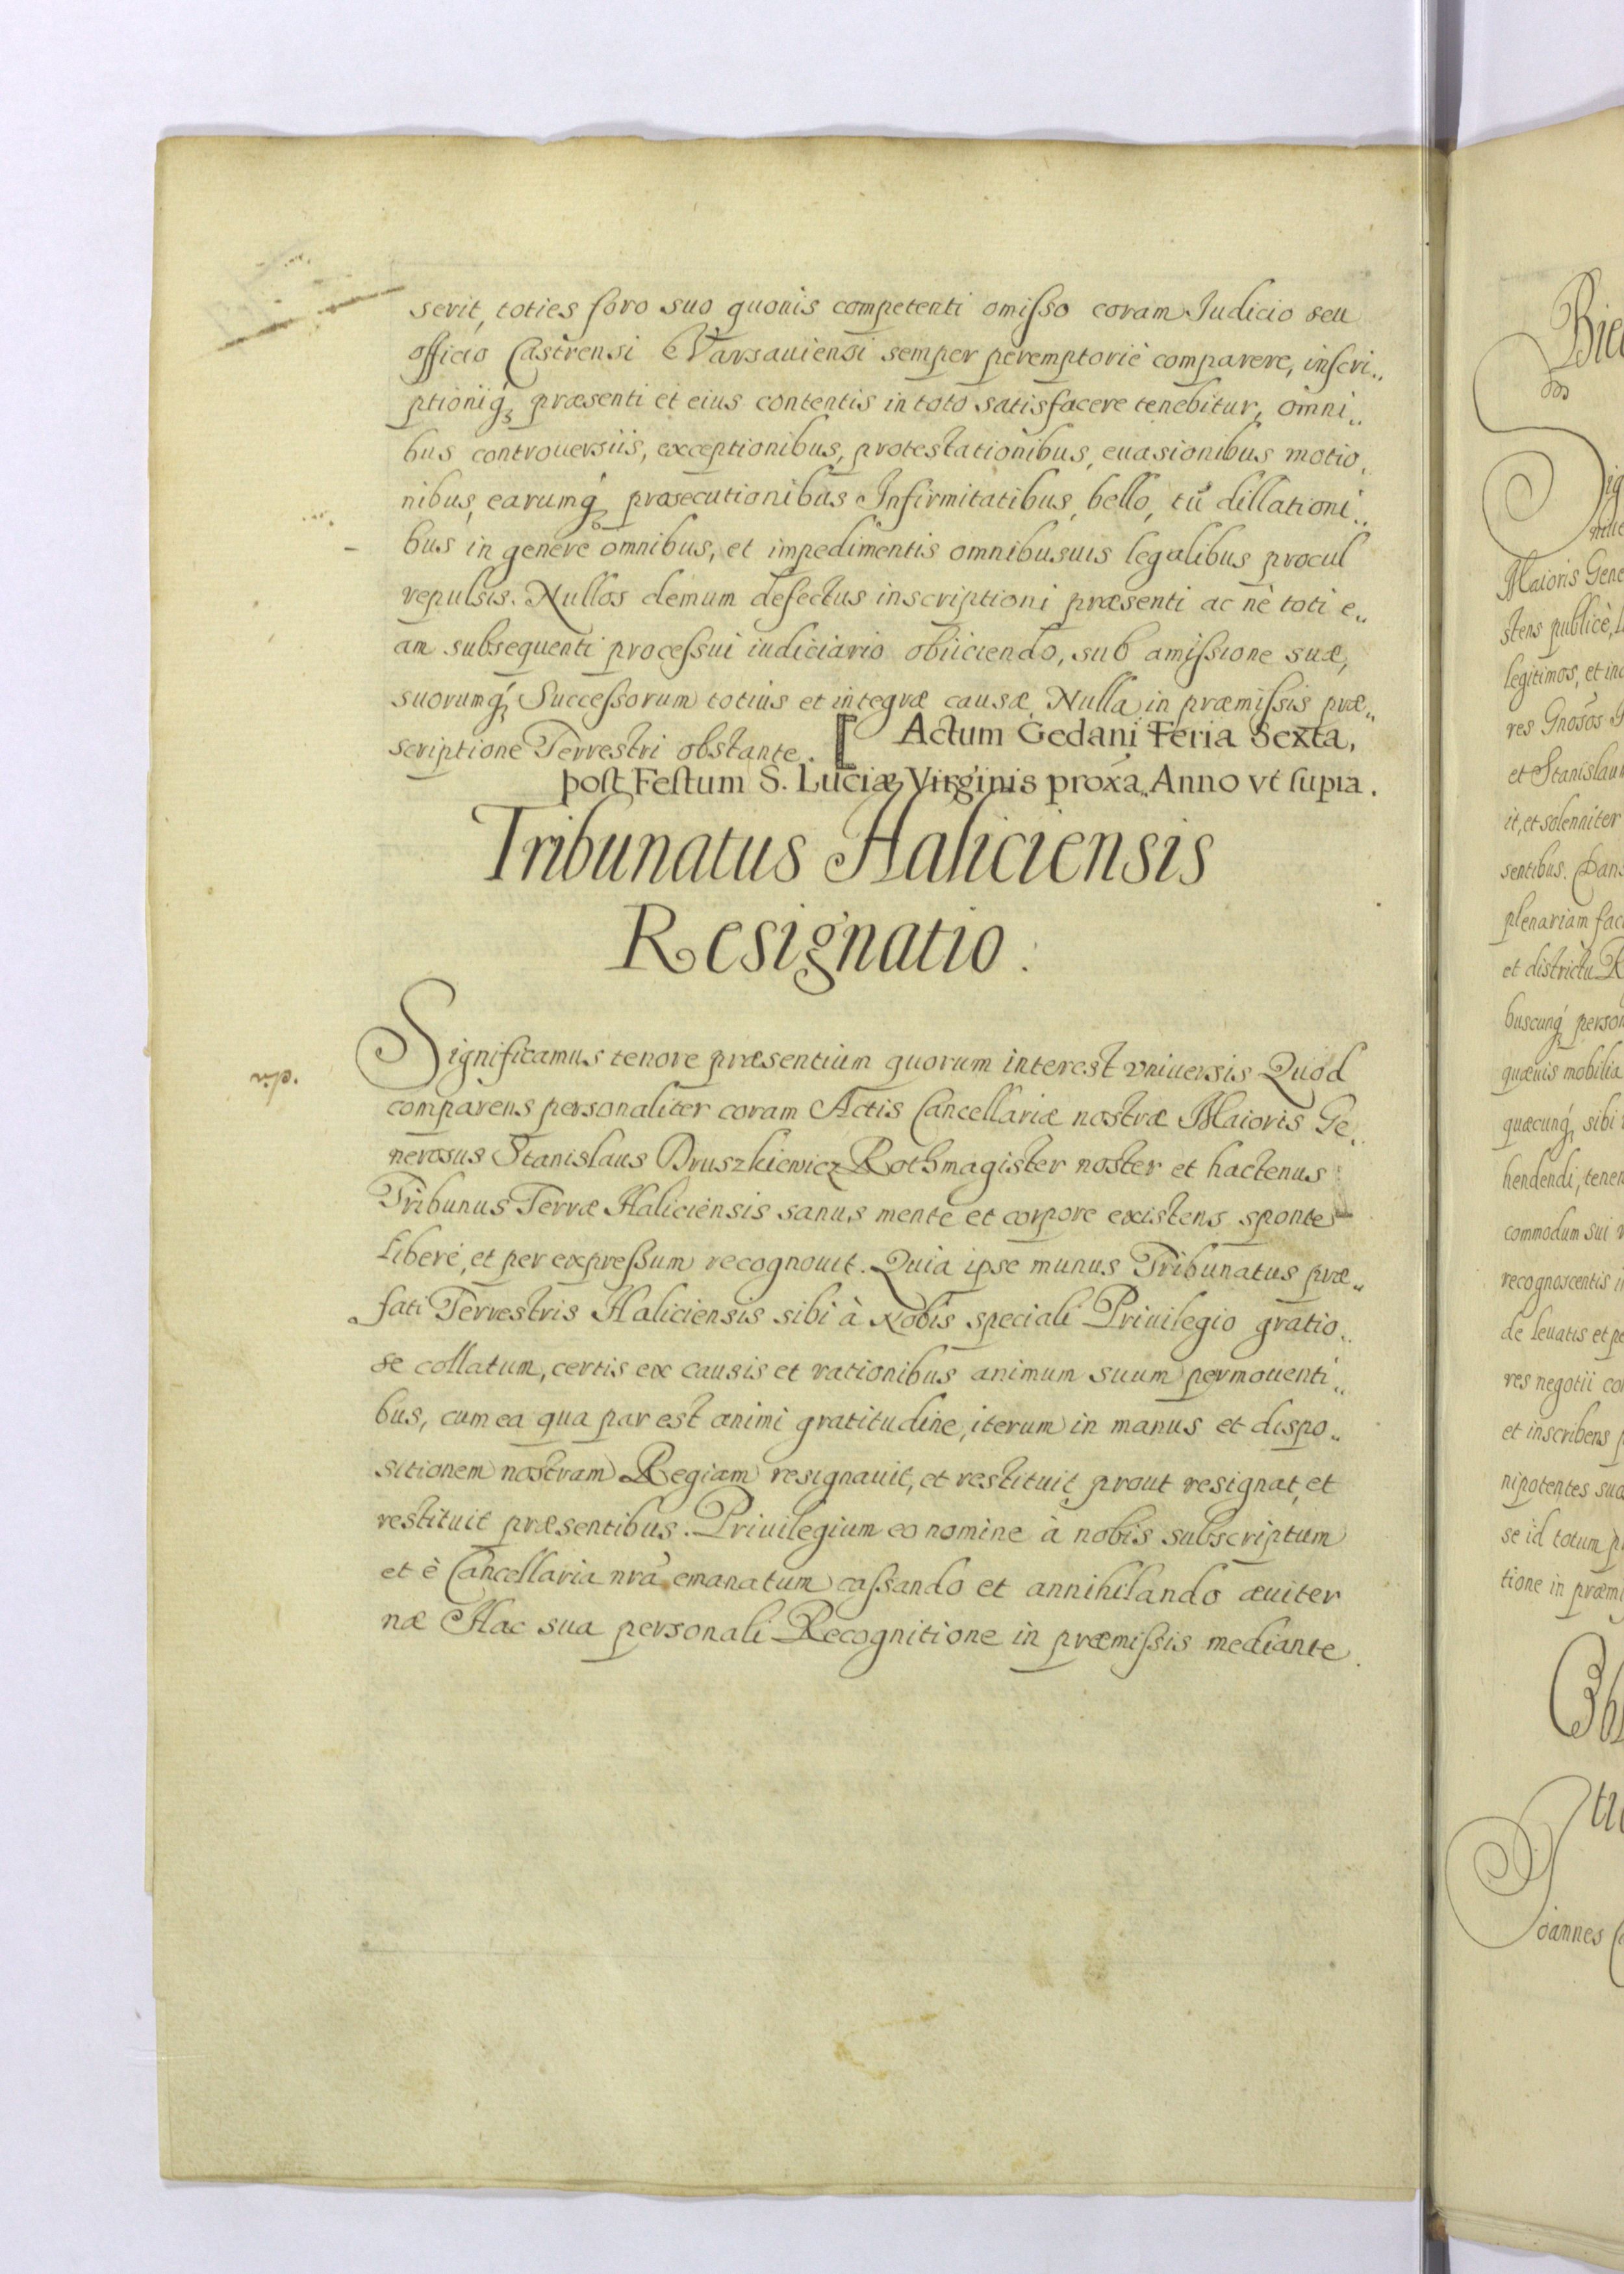 serit, toties foro suo quouis competenti omisso coram Iudicio seu
officio Castrensi Varsauiensi semper peremptoriè comparere, inscri„
ptioniq, præsenti et eius contentis in toto satisfacere tenebitur, omni„
bus controuersiis, exceptionibus, protestationibus, euasionibus motio„
nibus, earumq, prosecutionibus Infirmitatibus, bello, tũ dillationi„
bus in genere omnibus, et impedimentis omnibusuis legalibus procul
repulsis. Nullos demum defectus inscriptioni præsenti ac nè toti e„
am subsequenti processui iudiciario obiiciendo, sub amissione suæ,
suorumq, Successorum totius et integræ causæ, Nulla in præmissis præ„
scriptione Terrestri obstante. [ Actum Gedani Feria Sexta,
post Festum S. Luciæ Virginis proxa. Anno vt supra.
Tribunatus Haliciensis
Resignatio.
Significamus tenore præsentium quorum interest vniuersis Quod
comparens personaliter coram Actis Cancellariæ nostræ Maioris Ge„
nerosus Stanislaus Druszkiewicz Rothmagister noster et hactenus
Tribunus Terræ Haliciensis sanus mente et corpore existens sponte
liberè, et per expressum recognouit. Quia ipse munus Tribunatus præ„
fati Terrestris Haliciensis sibi à Nobis speciali Priuilegio gratio„
se collatum, certis ex causis et rationibus animum suum permouenti„
bus, cum ea qua par est animi gratitudine, iterum in manus et dispo„
sitionem nostram Regiam resignauit, et restituit prout resignat, et
restituit præsentibus. Priuilegium eo nomine à nobis subscriptum
et è Cancellaria nra emanatum cassando et annihilando æuiter
næ Hac sua personali Recognitione in præmissis mediante.
Maioris Gene
stens publicè,
legitimos, et
res Gnosos
et Stanislau
it, et solenniter
sentibus. Dans
plenariam fac
et districtu
buscunq, person
quæuis mobilia
quæcunq, sibi
hendendi, tenen
commodum sui
recognoscentis
de leuatis et pe
res negotii co
et inscribens
nipotentes sua
se id totum
tione in præmi
Ioannes